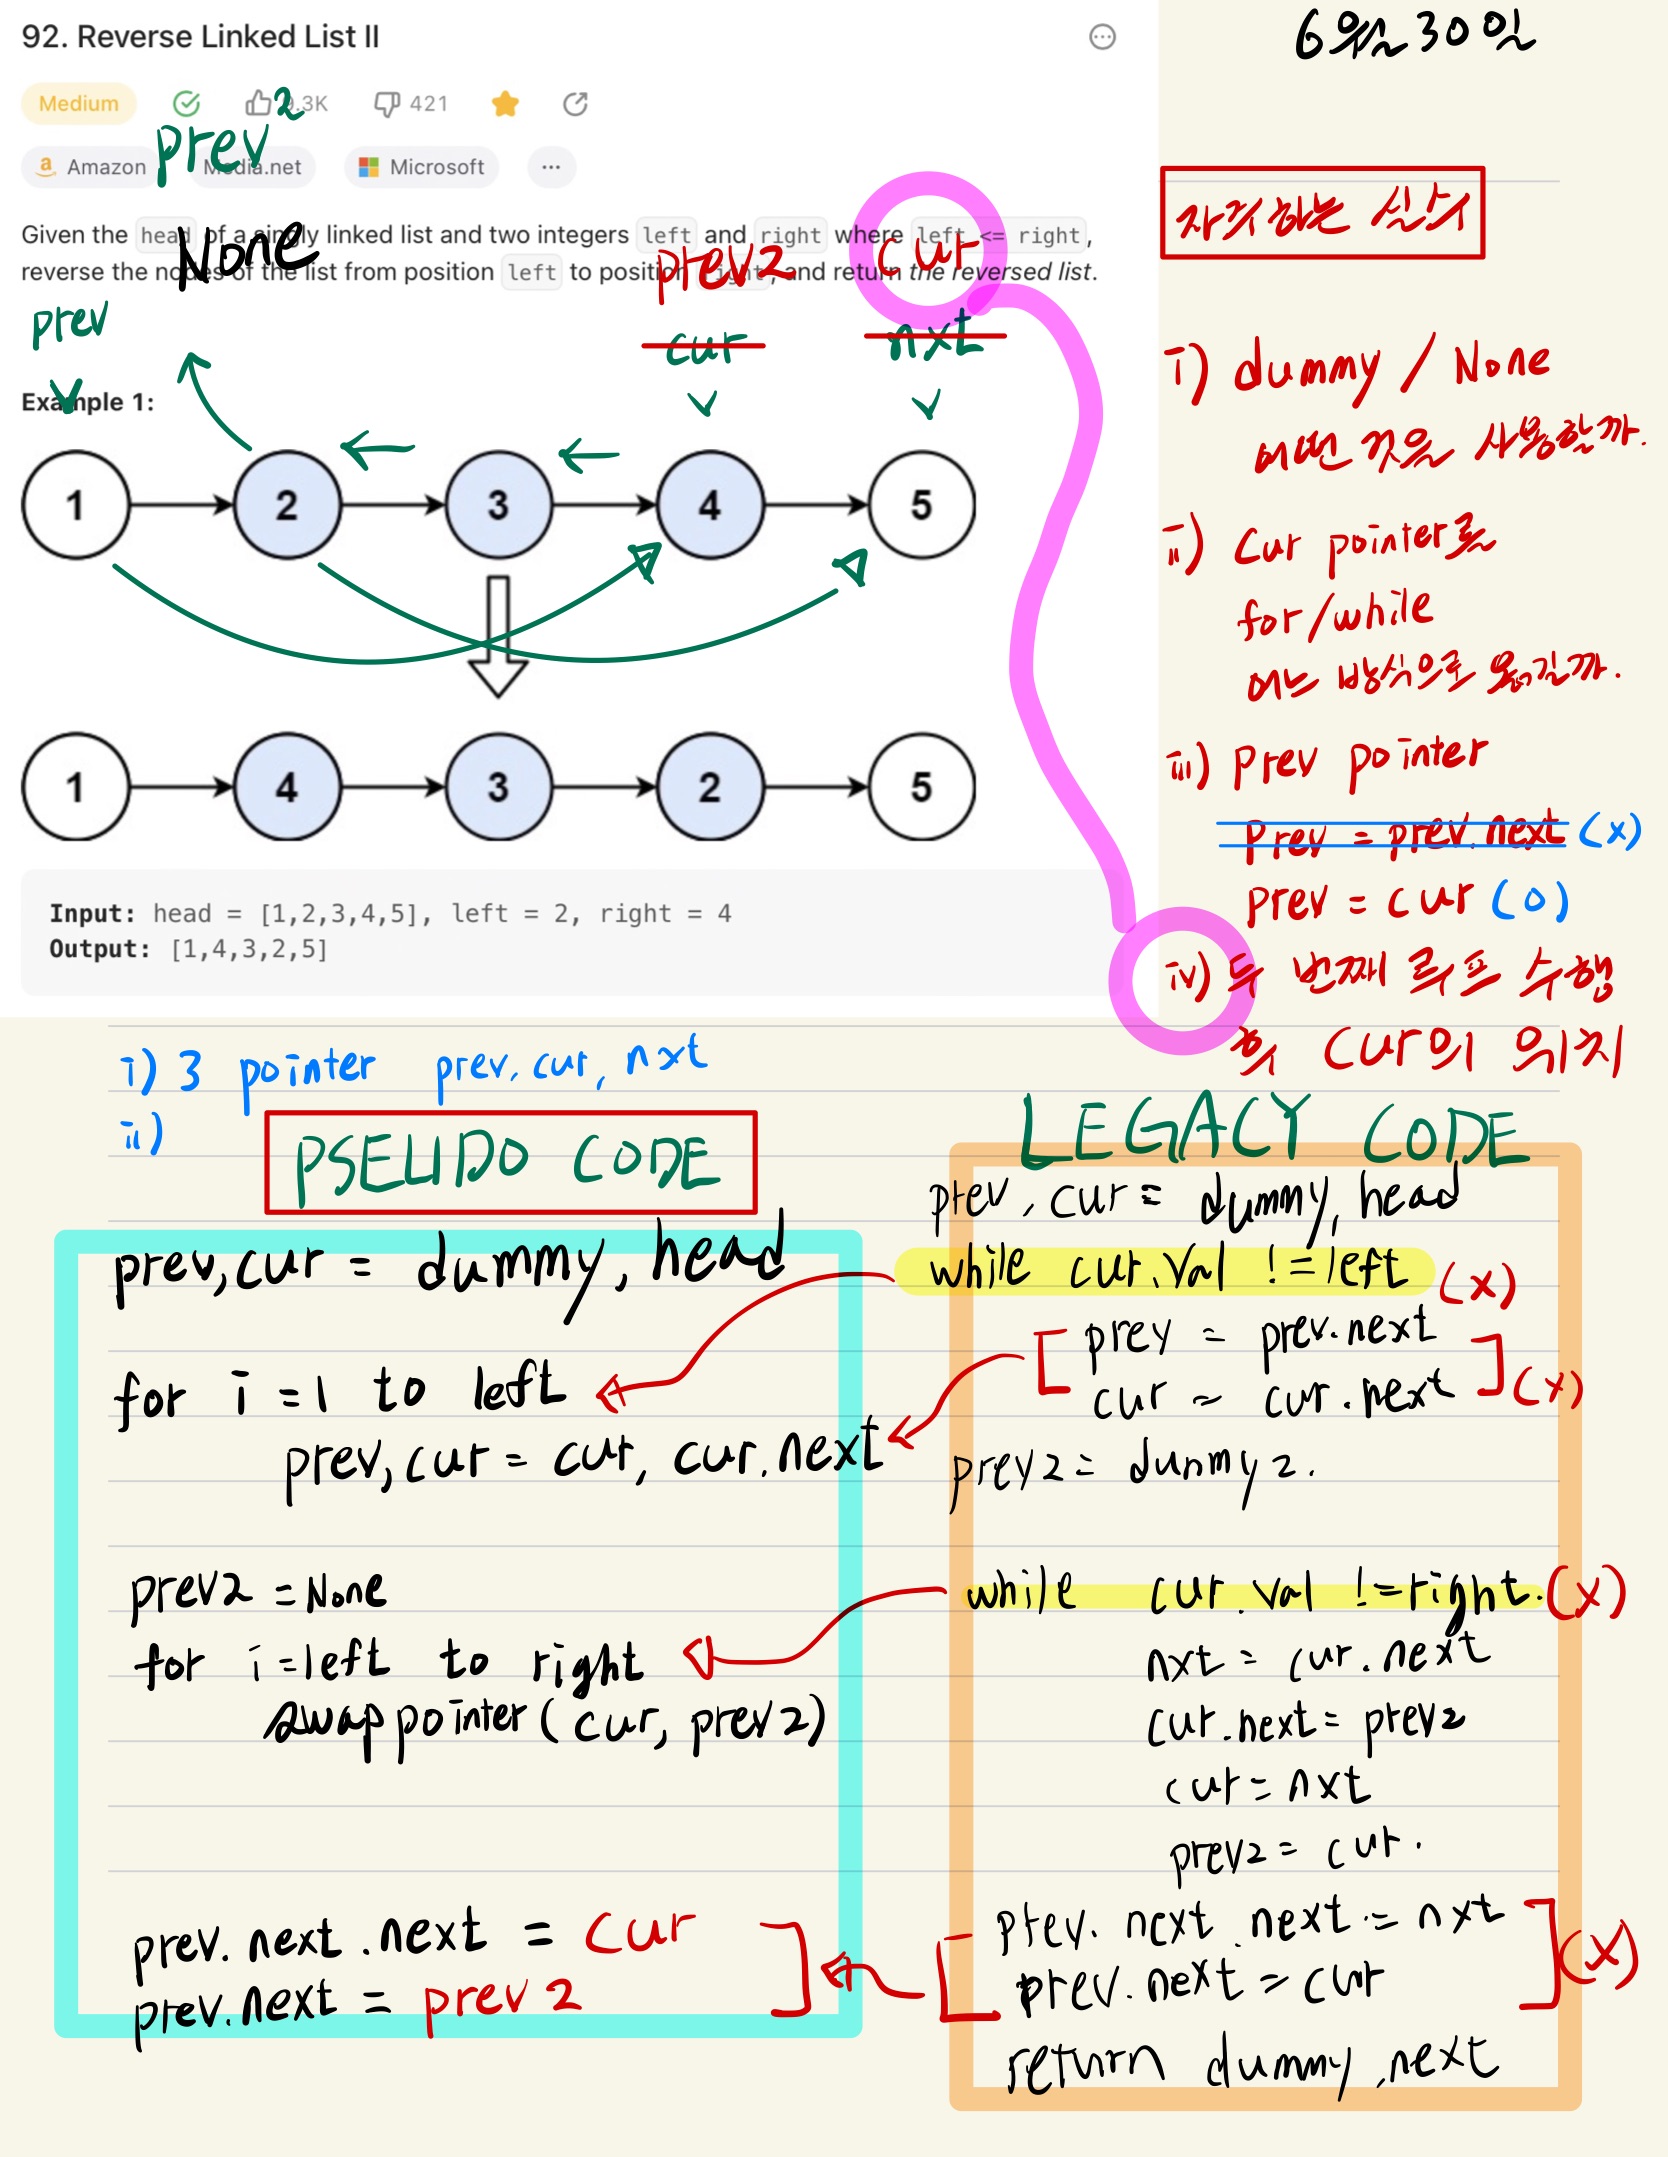 92. Reverse Linked List II
6월 30일
Medium
9.3K
421
prev2
Amazon
Media.net
Microsoft
...
자주하는 실수
Given the head of a singly linked list and two integers left and right where left <= right,
reverse the nodes of the list from position left to position right, and return the reversed list.
None
prev2
cur
prev
cur
nxt
Example 1:
1
2
3
4
5
1
4
3
2
5
Input: head = [1,2,3,4,5], left = 2, right = 4
Output: [1,4,3,2,5]
i) dummy / None
어떤 것을 사용할까.
ii) Cur pointer를
for/while
어느 방식으로 옮길까.
iii) Prev pointer
Prev = prev.next (x)
prev = cur (o)
iv) 두 번째 루프 수행
후 Cur의 위치
i) 3 pointer prev, cur, nxt
ii)
PSEUDO CODE
prev,cur = dummy, head
for i =1 to left
prev,cur = cur, cur.next
prev2 = None
for i =left to right
swap pointer ( cur, prev2)
prev.next.next = cur
prev.next = prev2
LEGACY CODE
prev, cur = dummy, head
while cur.val != left (x)
prev = prev.next
cur = cur.next (x)
prev2 = dummy2.
while cur.val != right. (x)
nxt = cur.next
cur.next = prev2
cur = nxt
prev2 = cur.
prev.next.next = nxt
prev.next = cur (x)
return dummy.next